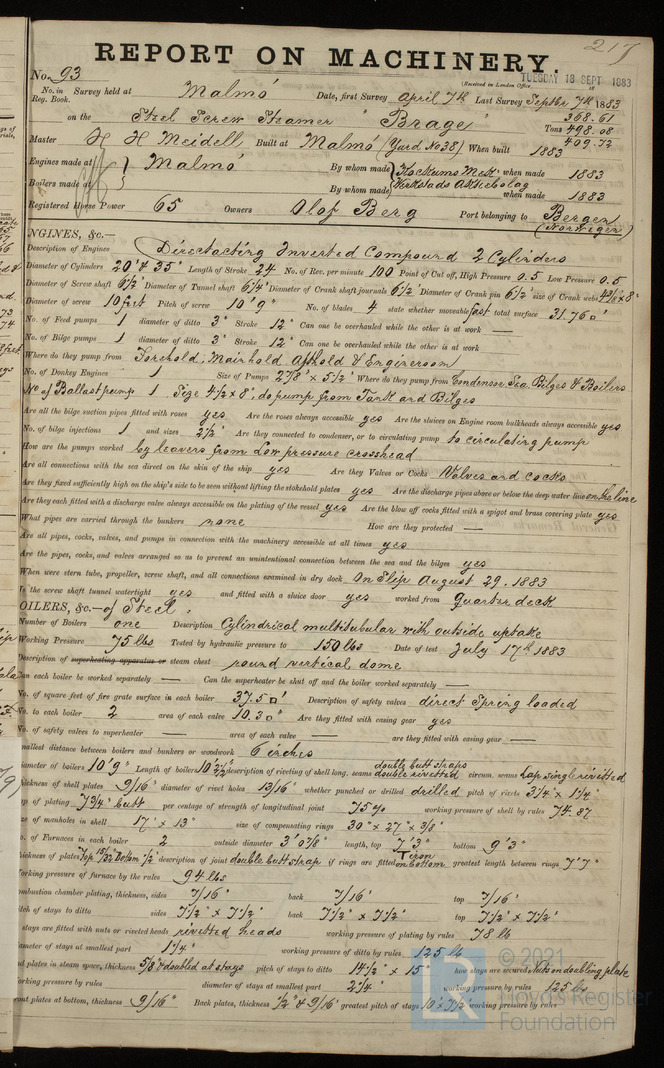 217
REPORT ON MACHINERY.
No. 93
(Received in London Office, TUESDAY 18 SEPT 1883
No. in Reg. Book. Survey held at Malmö Date, first Survey April 7th Last Survey Septbr 7th 1883
on the Steel Screw Steamer "Brage" Tons 368.61 498.08 409.72
Master H H Meidell Built at Malmö (Yard No 38) When built 1883
Engines made at Malmö By whom made Kockums Mek. when made 1883
Boilers made at By whom made Verkstads Aktiebolag when made 1883
Registered Horse Power 65 Owners Olof Berg Port belonging to Bergen (Norwegen)
NGINES, &c.—
Description of Engines Directacting Inverted Compound 2 Cylinders
Diameter of Cylinders 20" & 35" Length of Stroke 24 No. of Rev. per minute 100 Point of Cut off, High Pressure 0.5 Low Pressure 0.5
Diameter of Screw shaft 6 1/2" Diameter of Tunnel shaft 6 1/4" Diameter of Crank shaft journals 6 1/2" Diameter of Crank pin 6 1/2" size of Crank webs 4 3/4" × 8"
Diameter of screw 10 feet Pitch of screw 10' 9" No. of blades 4 state whether moveable fast total surface 31.76 □'
No. of Feed pumps 1 diameter of ditto 3" Stroke 12" Can one be overhauled while the other is at work —
No. of Bilge pumps 1 diameter of ditto 3" Stroke 12" Can one be overhauled while the other is at work —
Where do they pump from Forehold, Mainhold Afthold & Engineroom
No. of Donkey Engines 1 Size of Pumps 2 7/8" × 5 1/2" Where do they pump from Condensor, Sea, Bilges & Boilers
No of Ballastpump 1 Size 4 1/2 × 8", do pump from Tank and Bilges
Are all the bilge suction pipes fitted with roses yes Are the roses always accessible yes Are the sluices on Engine room bulkheads always accessible yes
No. of bilge injections 1 and sizes 2 1/2" Are they connected to condenser, or to circulating pump to circulating pump
How are the pumps worked by leavers from Low pressure crosshead
Are all connections with the sea direct on the skin of the ship yes Are they Valves or Cocks Valves and cocks
Are they fixed sufficiently high on the ship's side to be seen without lifting the stokehold plates yes Are the discharge pipes above or below the deep water line on the line
Are they each fitted with a discharge valve always accessible on the plating of the vessel yes Are the blow off cocks fitted with a spigot and brass covering plate yes
What pipes are carried through the bunkers none How are they protected —
Are all pipes, cocks, valves, and pumps in connection with the machinery accessible at all times yes
Are the pipes, cocks, and valves arranged so as to prevent an unintentional connection between the sea and the bilges yes
When were stern tube, propeller, screw shaft, and all connections examined in dry dock On Slip August 29. 1883
Is the screw shaft tunnel watertight yes and fitted with a sluice door yes worked from Quarter deck
OILERS, &c.— of Steel.
Number of Boilers one Description Cylindrical multitubular with outside uptake
Working Pressure 75 lbs Tested by hydraulic pressure to 150 lbs Date of test July 17th 1883
Description of superheating apparatus or steam chest round vertical dome
Can each boiler be worked separately — Can the superheater be shut off and the boiler worked separately —
No. of square feet of fire grate surface in each boiler 37.5 □' Description of safety valves direct Spring loaded
No. to each boiler 2 area of each valve 10.3 □" Are they fitted with easing gear yes
No. of safety valves to superheater — area of each valve — are they fitted with easing gear —
mallest distance between boilers and bunkers or woodwork 6 inches
double butt straps
Diameter of boilers 10' 9" Length of boilers description of riveting of shell long. seams double rivetted circum. seams Lap single rivetted
hickness of shell plates 9/16" diameter of rivet holes 13/16" whether punched or drilled drilled pitch of rivets 3 1/4" × 1 3/4"
ap of plating 7 3/4" butt per centage of strength of longitudinal joint 75% working pressure of shell by rules 74.87
ze of manholes in shell 17" × 13" size of compensating rings 30" × 27" × 3/8"
No. of Furnaces in each boiler 2 outside diameter 3' 0 7/8" length, top 7' 3" bottom 9' 3"
hickness of plates Top 15/32 Bottom 1/2" description of joint double butt strap if rings are fitted T iron on bottom greatest length between rings 7' 7"
orking pressure of furnace by the rules 94 lbs
ombustion chamber plating, thickness, sides 7/16" back 7/16" top 7/16"
itch of stays to ditto sides 7 1/2" × 7 1/2" back 7 1/2" × 7 1/2" top 7 1/2" × 7 1/2"
stays are fitted with nuts or riveted heads rivetted heads working pressure of plating by rules 78 lb
iameter of stays at smallest part 1 1/4" working pressure of ditto by rules 125 lb
nd plates in steam space, thickness 5/8" & doubled at stays pitch of stays to ditto 14 1/2" × 15" how stays are secured Nuts on doubling plate
orking pressure by rules diameter of stays at smallest part 2 1/4" working pressure by rules 125 lbs
ront plates at bottom, thickness 9/16" Back plates, thickness 1/2" & 9/16" greatest pitch of stays 10" × 7 1/2" working pressure by rules
© 2021
Lloyd's Register
Foundation